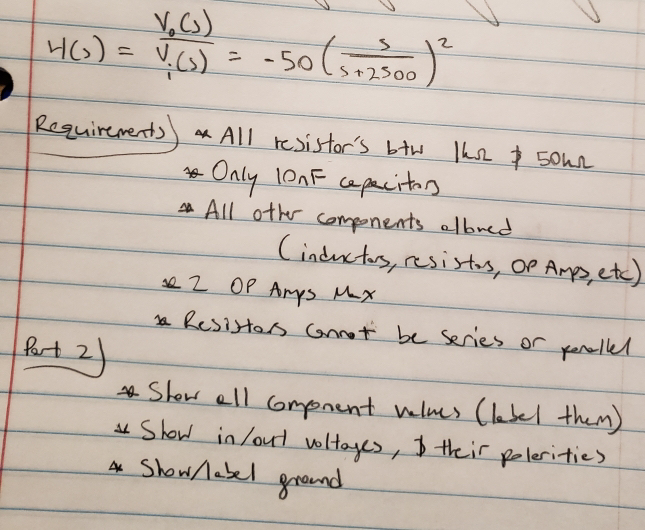 H(s) = V₀(s)/Vᵢ(s) = -50 (s/(s+2500))²
Requirements) * All resistor's btw 1kΩ & 50kΩ
* Only 10nF capacitors
* All other components allowed
(inductors, resistors, OP Amps, etc)
* 2 OP Amps Max
* Resistors cannot be series or parallel
Part 2)
* Show all component values (label them)
* Show in/out voltages, & their polarities
* Show/label ground